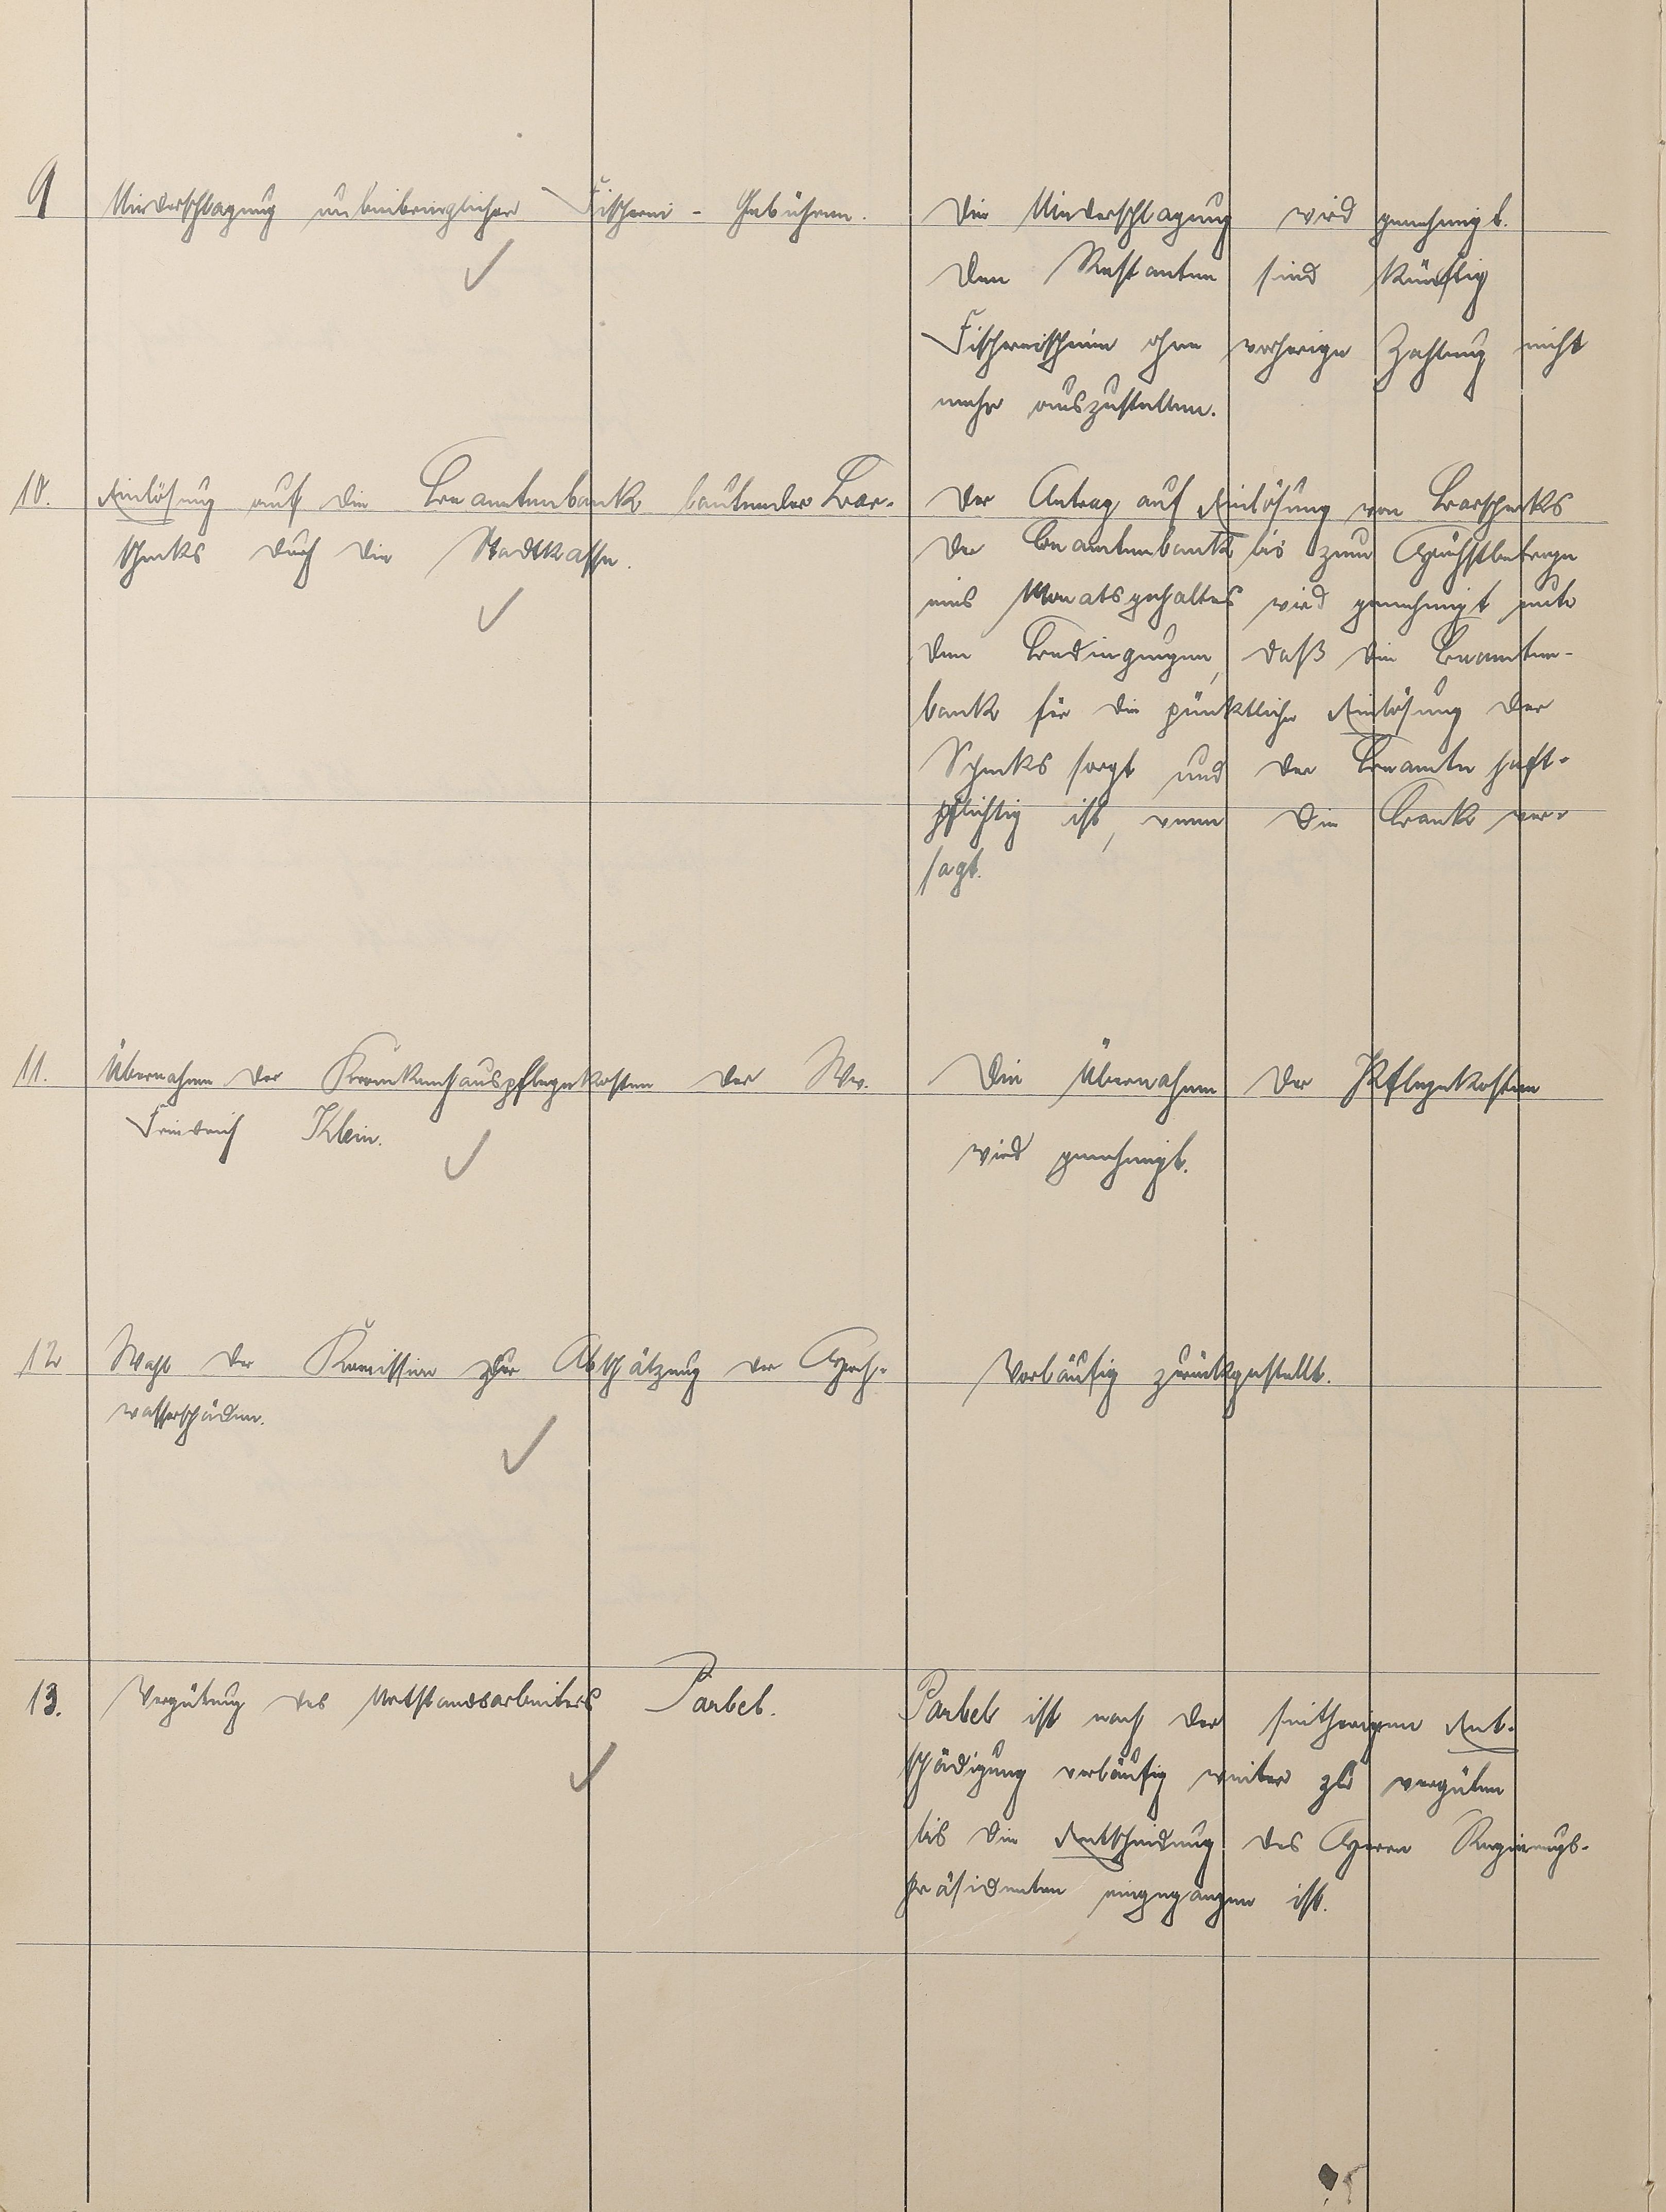 9
Niederschlagung unbeibringlicher Fischerei - Gebühren.
Die Niederschlagung wird genehmigt.
Den Restanten sind künftig
Fischereischeine ohne vorherige Zahlung nicht
mehr auszustellen.
10.
Einlösung auf die Beamtenbank lautender Bar-
schecks durch die Stadtkasse.
Der Antrag auf Einlösung von Barschecks
der Beamtenbank bis zum Höchstbetrage
eines Monatsgehaltes wird genehmigt unter
den Bedingungen, daß die Beamten-
bank für die pünktliche Einlösung der
Schecks sorgt und der Beamte haft-
pflichtig ist, wenn die Bank ver-
sagt.
11.
Übernahme der Krankenhauspflegekosten der Ww.
Friedrich Klein.
Die Übernahme der Pflegekosten
wird genehmigt.
12
Wahl der Komission zur Abschätzung der Hoch-
wasserschäden.
Vorläufig zurückgestellt.
13.
Vergütung des Notstandsarbeiters Parbel.
Parbel ist nach der seitherigen Ent-
schädigung vorläufig weiter zu vergüten
bis die Entscheidung des Herrn Regierungs-
präsidenten eingegangen ist.